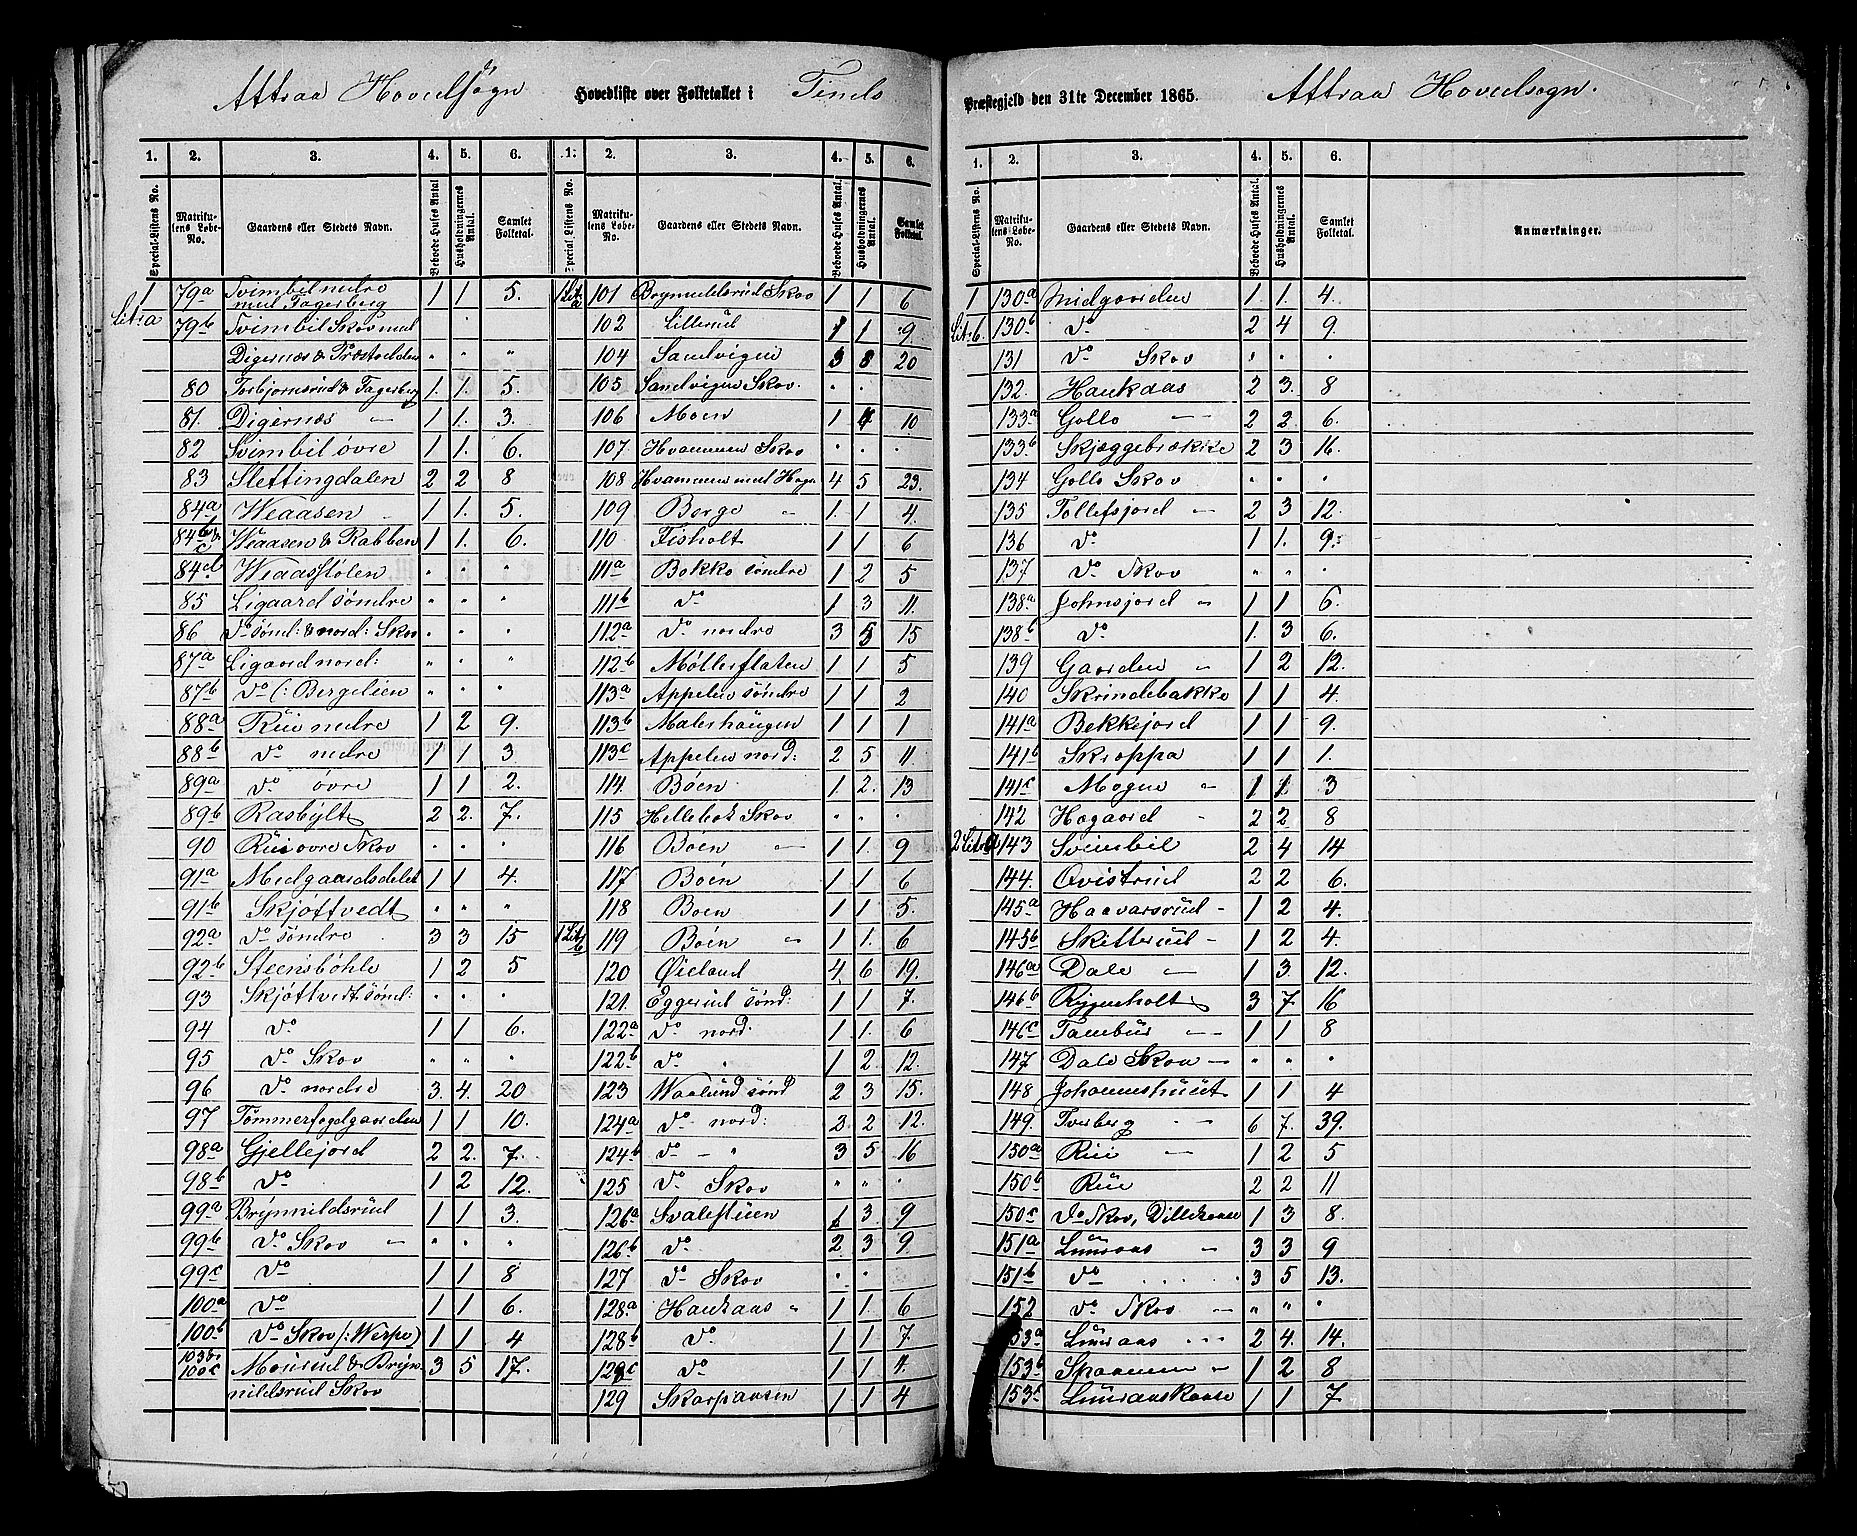 Attraa Hovedsogn Hovedliste over Folketallet i Tinds Præstegjeld den 31te December 1865. Attraa Hovedsogn.
1. 2. 3. 4. 5. 6.
Special-Listens No. Matrikulens Løbe-No. Gaardens eller Stedets Navn. Beboede Huses Antal Husholdningernes Antal. Samlet Folketal.
1 79a Svimbil nedre med Fagerberg 1 1 5.
Litr a 79b Svimbil Skov med
Digernæs & Træstedalen " " "
80 Torbjørnsrud & Fagerberg 1. 1. 5.
81. Digernæs 1 1. 3.
82 Svimbil øvre 1 1. 6.
83 Slettingdalen 2 2 8
84a Weaasen 1 1. 5.
84b & c Weaasen & Rabben 1 1. 6.
84d Weaasstølen " " "
85 Ligaard søndre " " "
86 Do sønd: & nord: Skov " " "
87a Ligaard nord: " " "
87b Do (: Bergelien " " "
88a Rui nedre 1 2 9.
88b Do nedre 1 1 3
89a Do øvre 1 1 2.
89b Rasbylt 2 2. 7.
90 Rui øvre Skov " " "
91a Midgaardsdelet 1 1 4.
91b Skjøttvedt " " "
92a Do søndre 3 3 15
92b Steensbøhle 1 2 5
93 Skjøttvedt sønd: " " "
94 Do 1 1 6.
95 Do Skov " " "
96 Do nordre 3. 4. 20
97 Tømmerfogdgaarden 1 1 10.
98a Gjellejord 2 2. 7.
98b Do 1 2 12.
99a Brynnildsrud 1 1 3.
99b Do Skov " " "
99c Do 1 1 8
100a Do 1 1 6.
100b Do Skov (: Werpe) 1 1 4
103 & 100c Mourud & Bryn- 3 5 17.
nildsrud Skov
1. 2. 3. 4. 5. 6.
Special-Listens No. Matrikulens Løbe-No. Gaardens eller Stedets Navn. Beboede Huses Antal. Husholdningernes Antal. Samlet Folketal.
1 Litr a 101 Brynnildsrud Skov 1 1 6
102 Lillerud 1 1 9
104 Sandvigen 3 8 20
105 Sandvigen Skov. " "
106 Moen 1 4 10
107. Hvammen Skov " " "
108 Hvammen med Hagen 4 5 23.
109 Berge 1. 1 4.
110 Fisholt 1 1 6
111a Bakko søndre 1 2 5
111b Do 1 3 11.
112a Do nordre 3 5 15
112b Møllerflaten 1 1 5
113a Appelen søndre 1 1 2
113b Maleshaugen 1 1 1
113c Appelen nord: 2 5 11.
114. Bøen 1 2. 13
115 Hellebek Skov " " "
116 Bøen 1 1. 9
117 Bøen 1 1 6
118 Bøen 1 1 5.
1 Litr b 119 Bøen 1 1. 6
120 Øieland 4 6 19.
121. Eggerud sønd: 1 1 7.
122a Do nord: 1 1. 6
122b Do 1 2. 12.
123 Waalund sønd 2 3 15.
124a Do nord: 2 2 12.
124b Do 3 5 16
125 Do Skov " " "
126a Svalestuen 1 3. 9
126b Do 2. 3 9
127 Do Skov " "
128a Haukaas 1 1. 6
128b Do 1 1 7
128c Do 1 1 4.
129 Skarpaasen 1 1 4
1. 2. 3. 4. 5. 6.
Special-Listens No. Matrikulens Løbe-No. Gaardens eller Stedets Navn. Beboede Huses Antal. Husholdningernes Antal. Samlet Folketal. Anmærkninger.
1 130a Midgaarden 1. 1. 4.
Litr b. 130b Do 2 4 9.
131 Do Skov " " "
132. Haukdas 2 3. 8
133a Gollo 2 2 6.
133b Skjæggebrække 2 3 16.
134 Gollo Skov " " "
135 Tollefsjord 2 3 12.
136 Do 1 1. 9.
137 Do Skov " " "
138a Johnsjord 1 1 6.
138b Do 1. 3 6.
139 Gaarden 1 2 12.
140 Skrindebakke 1 1 4.
141a Bekkejord 1 1 9.
141b Skroppa 1 1 1.
141c Mogne 1 1 3
142 Hogaard 2 2 8
2 Litr a 143 Svimbil 2 4 14
144. Qvistrud 2 2 6.
145a Haavarsrud 1 2 4.
145b Skitterud 1 2 4.
146a Dale 1 3. 12.
146b Rygenholt 3 7 16
146c Tambur 1 1 8
147 Dale Skov " " "
148 Johanneshuset 1 1 4
149. Tverberg 6 7. 39.
150a Rui 1 2 5
150b Rue 2 2 11
150c Do Skov, Dillekaase 1 3 8.
151a Luuraas 3 3 9
151b Do 3 5 13.
152 Do Skov " " "
153a Luuraas 2 4. 14.
153b Skaarnen 1 2 8
153c Luuraas Kaase 1 1 7